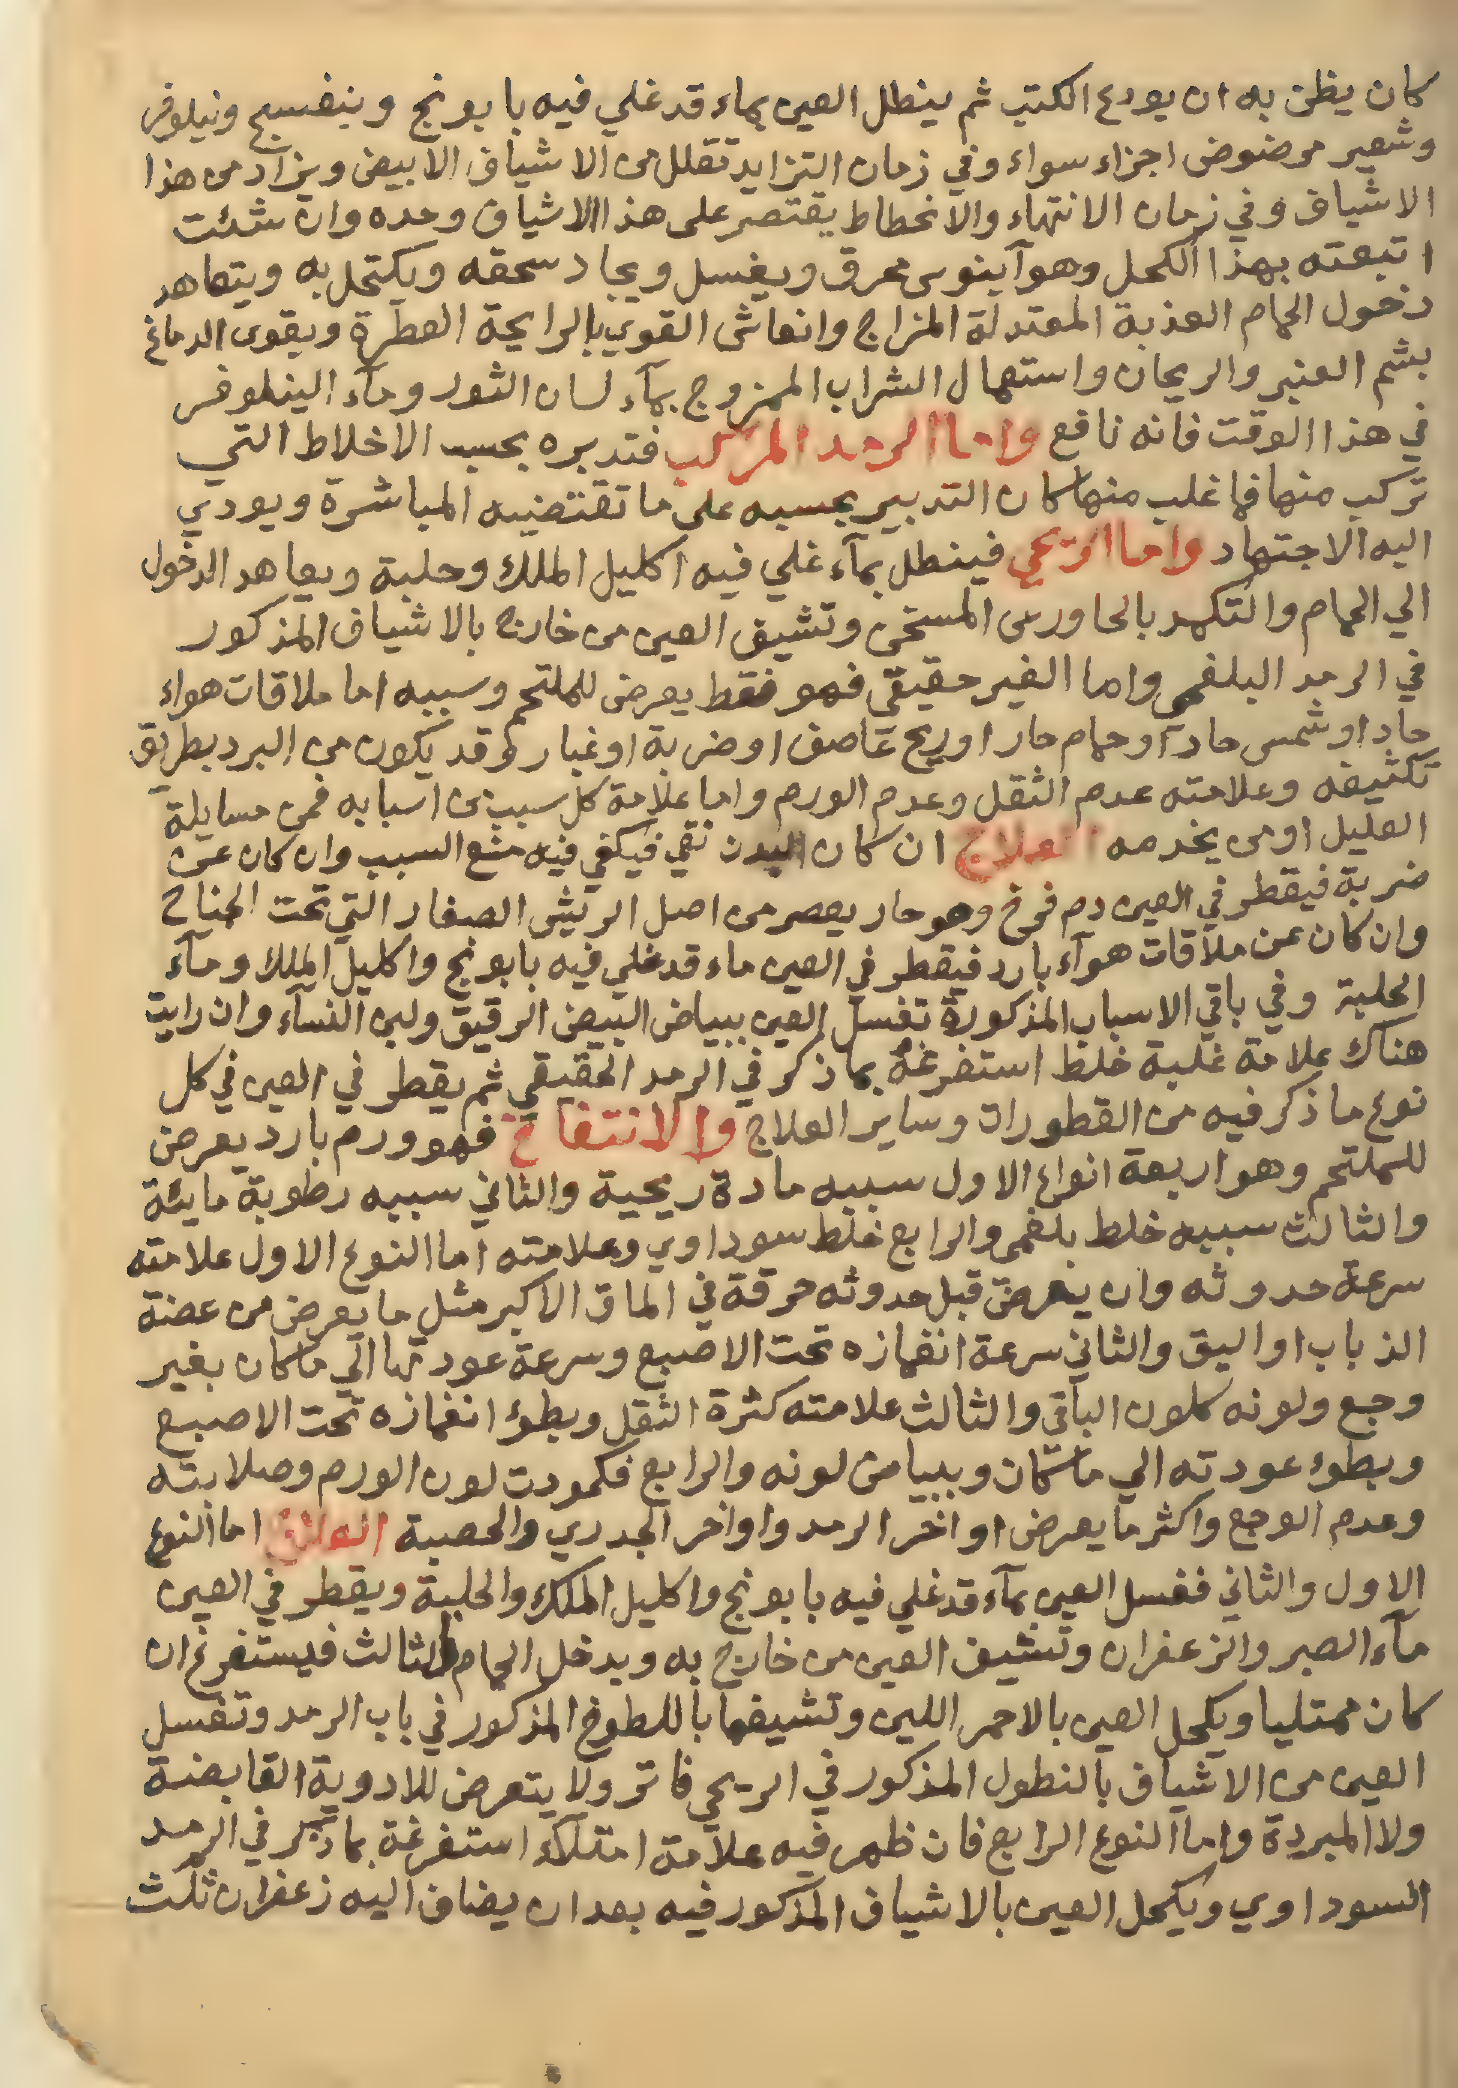 كان يظن به ان يودع الكتب ثم ينطل العين بماء قد غلي فيه بابونج وبنفسج ونيلوفر
وشعير مرضوض اجزاء سواء وفي زمان التزايد تقلل من الاشياف الابيض ويزاد من هذا
الاشياف وفي زمان الانتهاء والانحطاط يقتصر على هذا الاشياف وحده وان شئت
اتبعته بهذا الكحل وهو آبنوس محرق ويغسل ويجاد سحقه ويكتحل به ويتعاهد
دخول الحمام العذبة المعتدلة المزاج وانعاش القوي بالرايحة العطرة ويقوى الدماغ
بشم العنبر والريحان واستعمال الشراب الممزوج بمآء لسان الثور ومآء النيلوفر
في هذا الوقت فانه نافع واما الرمد المركب فتدبره بحسب الاخلاط التي
تركب منها فما غلب منها كان التدبير بحسبه على ما تقتضيه المباشرة ويودي
اليه الاجتهاد واما الريحي فينطل بمآء غلي فيه اكليل الملك وحلبة ويعاهد الدخول
الي الحمام والتكمد بالجاورس المسخن وتشيف العين من خارج بالاشياف المذكور
في الرمد البلغمي واما الغير حقيقي فهو فقط يعرض للملتحم وسببه اما ملاقات هواء
حاد او شمس حادة او حمام حار او ريح عاصف او ضربة او غبار وقد يكون من البرد بطريق
تكثيفه وعلامته عدم الثقل وعدم الورم واما علامة كل سبب من اسبابه فمن مسايلة
العليل او من يخدمه العلاج ان كان البدن نقي فيكفي فيه منع السبب وان كان عن
ضربة فيقطر في العين دم فرخ وهو حار يعصر من اصل الريش الصغار التي تحت الجناح
وان كان عن ملاقات هوآء بارد فيقطر في العين ماء قد غلي فيه بابونج واكليل الملك ومآء
الحلبة وفي باقي الاسباب المذكورة تغسل العين ببياض البيض الرقيق ولبن النسآء وان رايت
هناك علامة غلبة خلط استفرغه بما ذكر في الرمد الحقيقي ثم يقطر في العين في كل
نوع ما ذكر فيه من القطورات وساير العلاج والانتفاخ فهو ورم بارد يعرض
للملتحم وهو اربعة انواع الاول سببه مادة ريحية والثاني سببه رطوبة مايئة
والثالث سببه خلط بلغمي والرابع خلط سوداوي وعلامته اما النوع الاول علامته
سرعة حدوثه وان يعرض قبل حدوثه حرقة في الماق الاكبر مثل ما يعرض من عضة
الذباب او البق والثاني سرعة انغمازه تحت الاصبع وسرعة عودتها الي ما كان بغير
وجع ولونه كلون الباقي والثالث علامته كثرة الثقل وبطؤ انغمازه تحت الاصبع
وبطوء عودته الي ما كان وبياض لونه والرابع فكمودت لون الورم وصلابته
وعدم الوجع واكثر ما يعرض اواخر الرمد واواخر الجدري والحصبة العلاج اما النوع
الاول والثاني فغسل العين بمآء قد غلي فيه بابونج واكليل الملك والحلبة ويقطر في العين
مآء الصبر والزعفران وتشيف العين من خارج به ويدخل الحمام والثالث فيستفرغ ان
كان ممتليا ويكحل العين بالاحمر اللين وتشيفها باللطوخ المذكور في باب الرمد وتغسل
العين من الاشياف بالنطول المذكور في الريحي فاتر ولا يتعرض للادوية القابضة
ولا المبردة واما النوع الرابع فان ظهر فيه علامة امتلآء استفرغة بما ذكر في الرمد
السوداوي ويكحل العين بالاشياف المذكور فيه بعد ان يضاف اليه زعفران ثلث